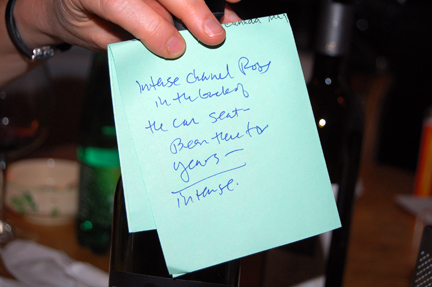 Intense chanel Rose
in the back of
the car seat-
Been there for
years —
intense.